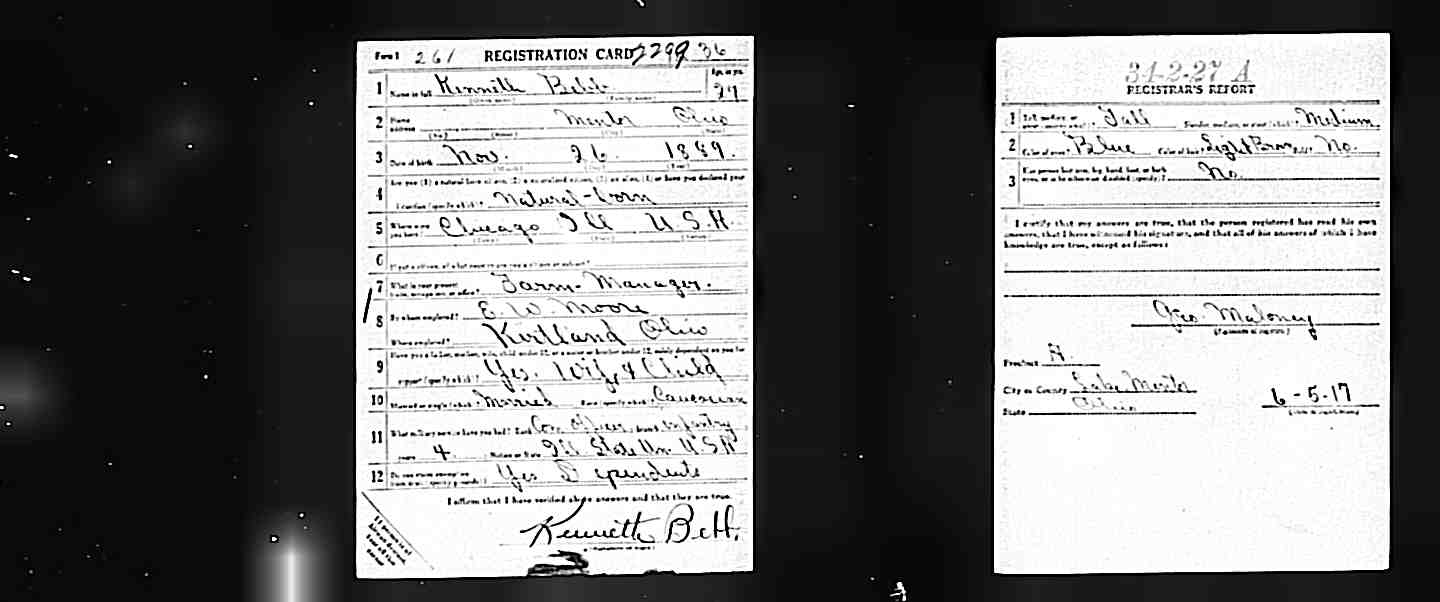 Form 1 261 REGISTRATION CARD 2299 36
1 Name in full Kenneth Age, in yrs. 27
2 Home address Mentor Ohio
(No.) (Street) (City) (State)
3 Date of birth Nov. 26 1889.
(Month) (Day) (Year)
4 Are you (1) a natural-born citizen, (2) a naturalized citizen, (3) an alien, (4) or have you declared your
intention (specify which)? Natural-born
5 Where were you born? Chicago Ill U.S.A.
(Town) (State) (Nation)
6 If not a citizen, of what country are you a citizen or subject?
7 What is your present trade, occupation, or office? Farm-Manager.
8 By whom employed? E. W. Moore
Where employed? Kirtland Ohio
9 Have you a father, mother, wife, child under 12, or a sister or brother under 12, solely dependent on you for
support (specify which)? Yes. Wife & Child
10 Married or single (which)? Married Race (specify which)? Caucasian
11 What military service have you had? Rank Com officer branch infantry
years 4 Nation or State Ill State Un. U.S.A
12 Do you claim exemption from draft (specify grounds)? Yes Dependents
I affirm that I have verified above answers and that they are true.
Kenneth
(Signature or mark)
34-2-27 A
REGISTRAR'S REPORT
1 Tall Slender, medium, or stout (which)? Medium
2 Color of eyes? Blue Color of hair? Light Brown Bald? No.
3 Has person lost arm, leg, hand, foot, or both eyes, or is he otherwise disabled (specify)? No.
I certify that my answers are true, that the person registered has read his own
answers, that I have witnessed his signature, and that all of his answers of which I have
knowledge are true, except as follows:
Geo. Maloney
(Signature of registrar)
Precinct A.
City or County Lake Mentor
State Ohio 6-5-17
(Date of registration)